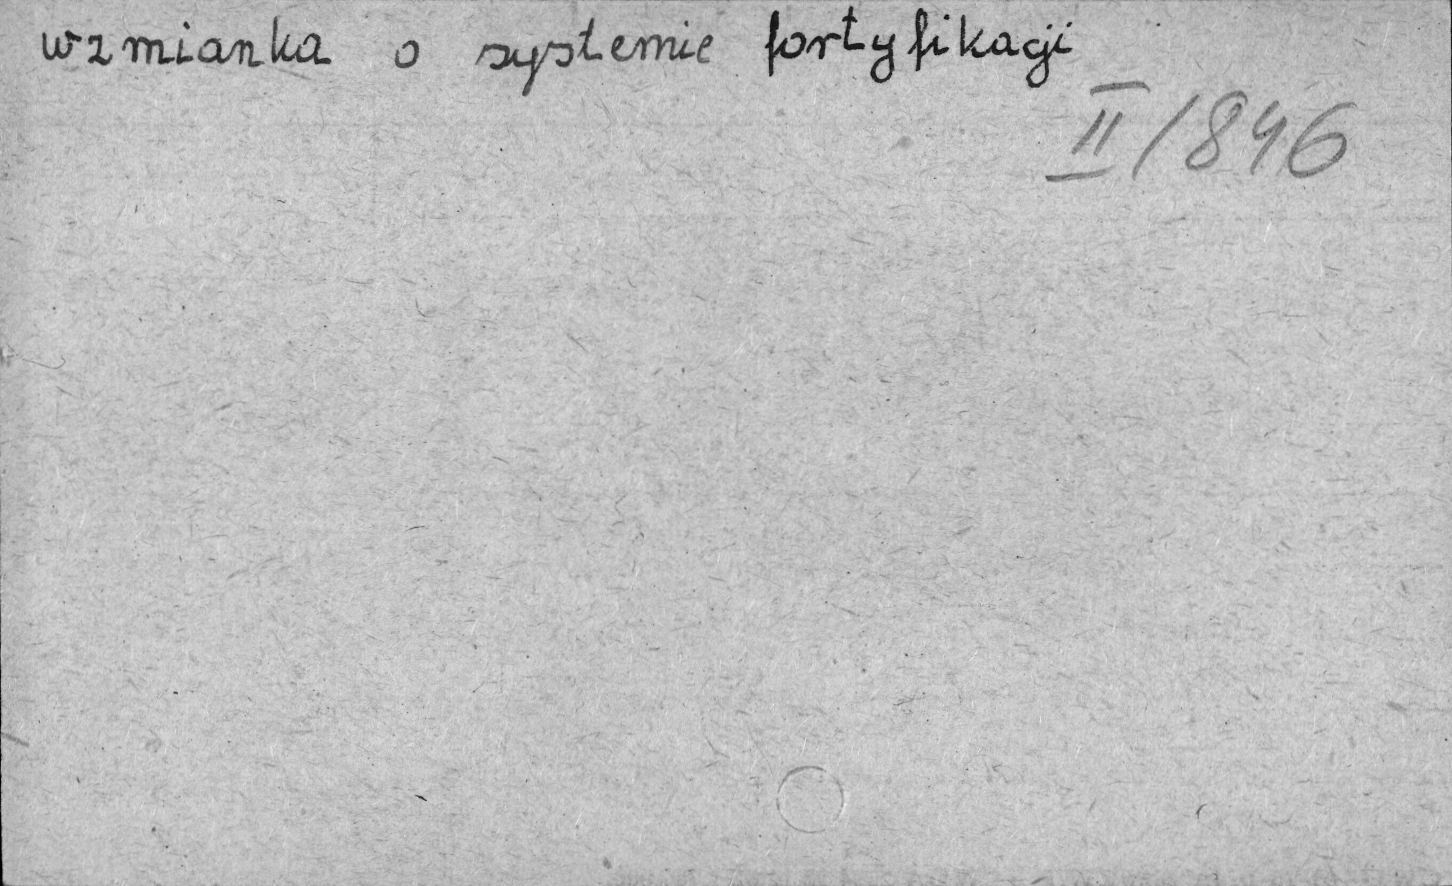 wzmianka o systemie fortyfikacji
II/846